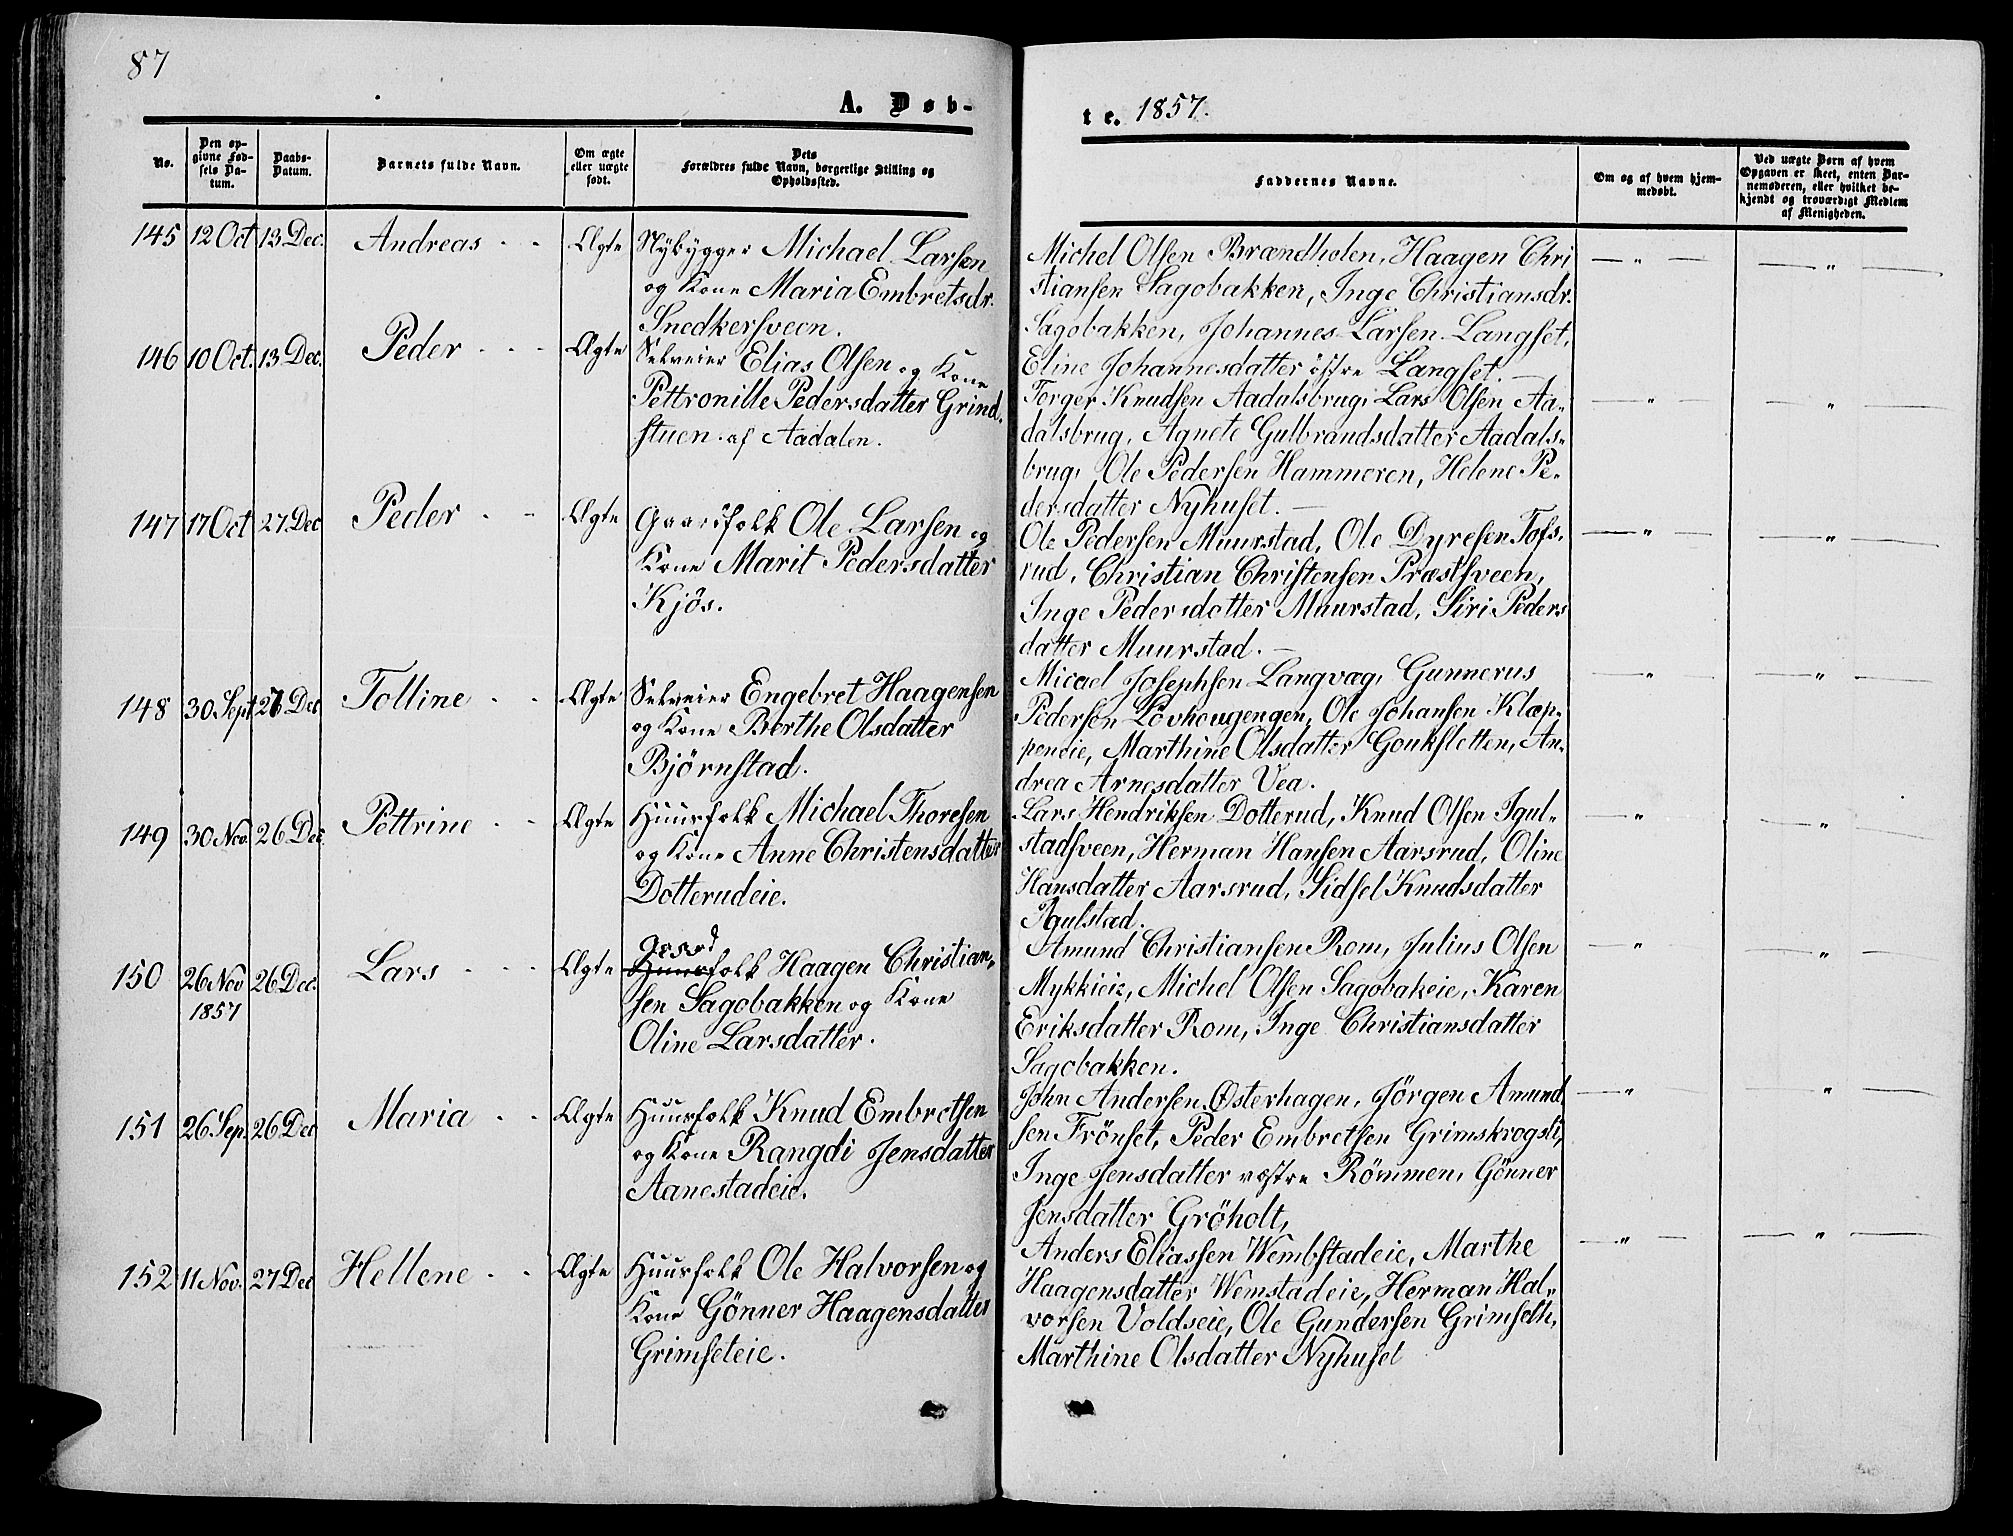 87
A. Døb-
te. 1857.
No.
Den op-
givne Fød-
sels Da-
tum.
Daabs-
Datum.
Barnets fulde Navn.
Om ægte
eller uægte
født.
Dets
Forældres fulde Navn, borgerlige Stilling og
Opholdssted.
Faddernes Navne.
Om og af hvem hjem-
medøbt.
Ved uægte Børn af hvem
Opgaven er skeet, enten Bar-
nemoderen, eller hvilket be-
kjendt og troværdigt Medlem
af Menigheden.
145 12 Oct 13 Dec. Andreas - - Ægte Nybygger Michael Larsen
og Kone Maria Embretsdr.
Snedkersveen.
Michel Olsen Brændholen, Haagen Chri
stiansen Sagobakken, Inge Christiansdr.
Sagobakken, Johannes Larsen Langset,
Eline Johannesdatter östre Langset. —
— " — — " —
146 10 Oct. 13 Dec. Peder - - - Ægte Selveier Elias Olsen og Kone
Pettronille Pedersdatter Grind-
stuen af Aadalen.
Torger Knudsen Aadalsbrug, Lars Olsen Aa-
dalsbrug, Agnete Gulbrandsdatter Aadals-
brug, Ole Pedersen Hammeren, Helene Pe-
dersdatter Nyhuset. —
— " — — " —
147 17 Oct 27. Dec Peder - - Ægte Gaardfolk Ole Larsen og
Kone Marit Pedersdatter
Kjös.
Ole Pedersen Muurstad, Ole Dyresen Tofs-
rud, Christian Christensen Præstsveen,
Inge Pedersdatter Muurstad, Siri Peders
datter Muurstad. —
— " — — " —
148 30 Sept 27 Dec Tolline - - Ægte Selveier Engebret Haagensen
og Kone Berthe Olsdatter
Bjørnstad.
Micael Josephsen Langvæg, Gunnerus
Pedersen Lövhougengen, Ole Johansen Klæp-
peneie, Marthine Olsdatter Gouksletten, An-
drea Arnesdatter Vea.
— " — — " —
149 30 Nov. 26 Dec. Pettrine - - Ægte Huusfolk Michael Thoresen
og Kone Anne Christensdatter
Dotterudeie.
Lars Hendriksen Dotterud, Knud Olsen Igul-
stadsveen, Herman Hansen Aarsrud, Oline
Hansdatter Aarsrud, Sidsel Knudsdatter
Igulstad.
— " — — " —
150 26 Nov 26 Dec. Lars - - - Ægte Gaard
1857
Huusfolk Haagen Christian-
sen Sagobakken og Kone
Oline Larsdatter.
Amund Christiansen Rom, Julius Olsen
Mykkieie, Michel Olsen Sagobakeie, Karen
Eriksdatter Rom, Inge Christiansdatter
Sagobakken.
— " — — " —
151 26 Sep. 26 Dec Maria - - Ægte Huusfolk Knud Embretsen
og Kone Rangdi Jensdatter
Aanestadeie.
John Andersen Østerhagen, Jörgen Amund
sen Frönset, Peder Embretsen Grimskrogsti,
Inge Jensdatter vestre Römmen, Gönner
Jensdatter Gröholt,
— " — — " —
152 11 Nov. 27 Dec Hellene - - Ægte Huusfolk Ole Halvorsen og
Kone Gönner Haagensdatter
Grimseteie.
Anders Eliassen Wembstadeie, Marthe
Haagensdatter Wemstadeie, Herman Hal-
vorsen Voldseie, Ole Gundersen Grimseth,
Marthine Olsdatter Nyhuset
— " — — " —